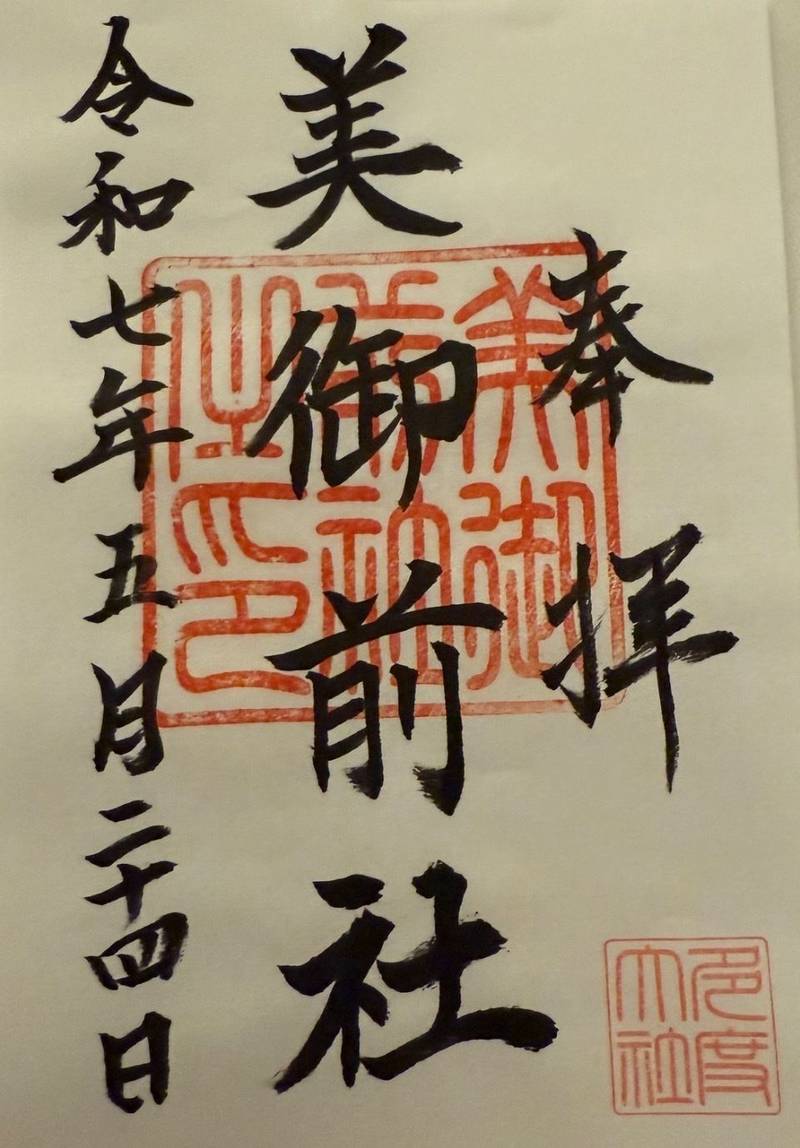 奉拝
美御前社
令和七年五月二十四日
美御
前社
之印
多度
大社